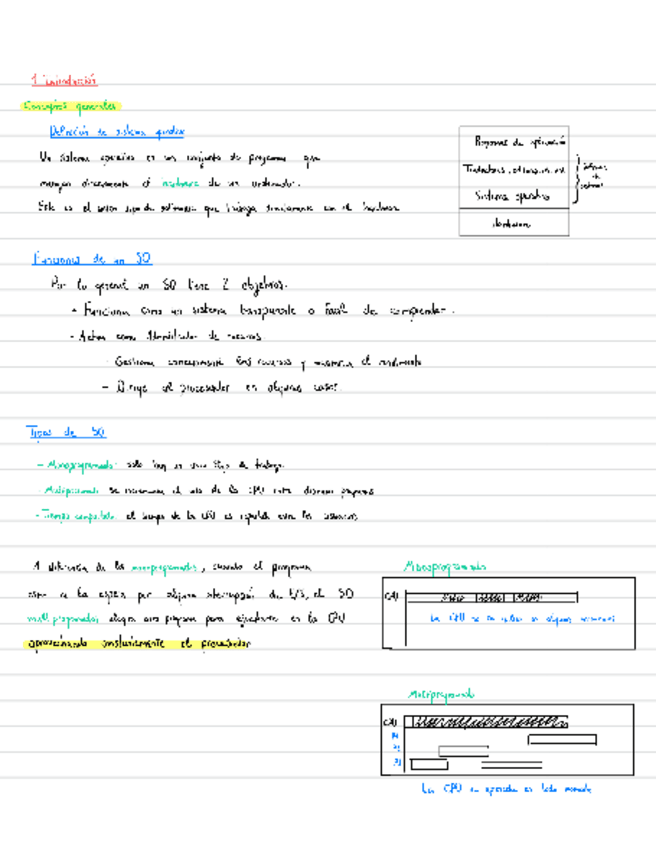 1. Introducción
Conceptos generales
Definición de sistema operativo
Un sistema operativo es un conjunto de programas que
manejan directamente el hardware de un ordenador.
Este es el único tipo de software que trabaja directamente con el hardware
Programas de aplicación
Sistema operativo
Hardware
Funciones de un SO
Por lo general un SO tiene 2 objetivos.
- Funciona como un sistema transparente o fácil de comprender.
- Actua como Administrador de recursos
- Gestiona los recursos y el rendimiento
- Dirige al procesador en algunos casos.
Tipos de SO
- Monoprogramado: solo hay un único flujo de trabajo
- Multiprogramado: se el uso de la CPU entre diversos programas
- Tiempo compartido: el tiempo de la CPU es repartido entre los usuarios
A diferencia de los monoprogramados, cuando el programa
esta a la espera por alguna interrupción de E/S, el SO
multiprogramado elegira otro programa para ejecutarse en la CPU
aprovechando el procesador
Monoprogramado
CPU
La CPU no se utiliza en algunos momentos
Multiprogramado
CPU
P2
P1
La CPU se aprovecha en todo momento